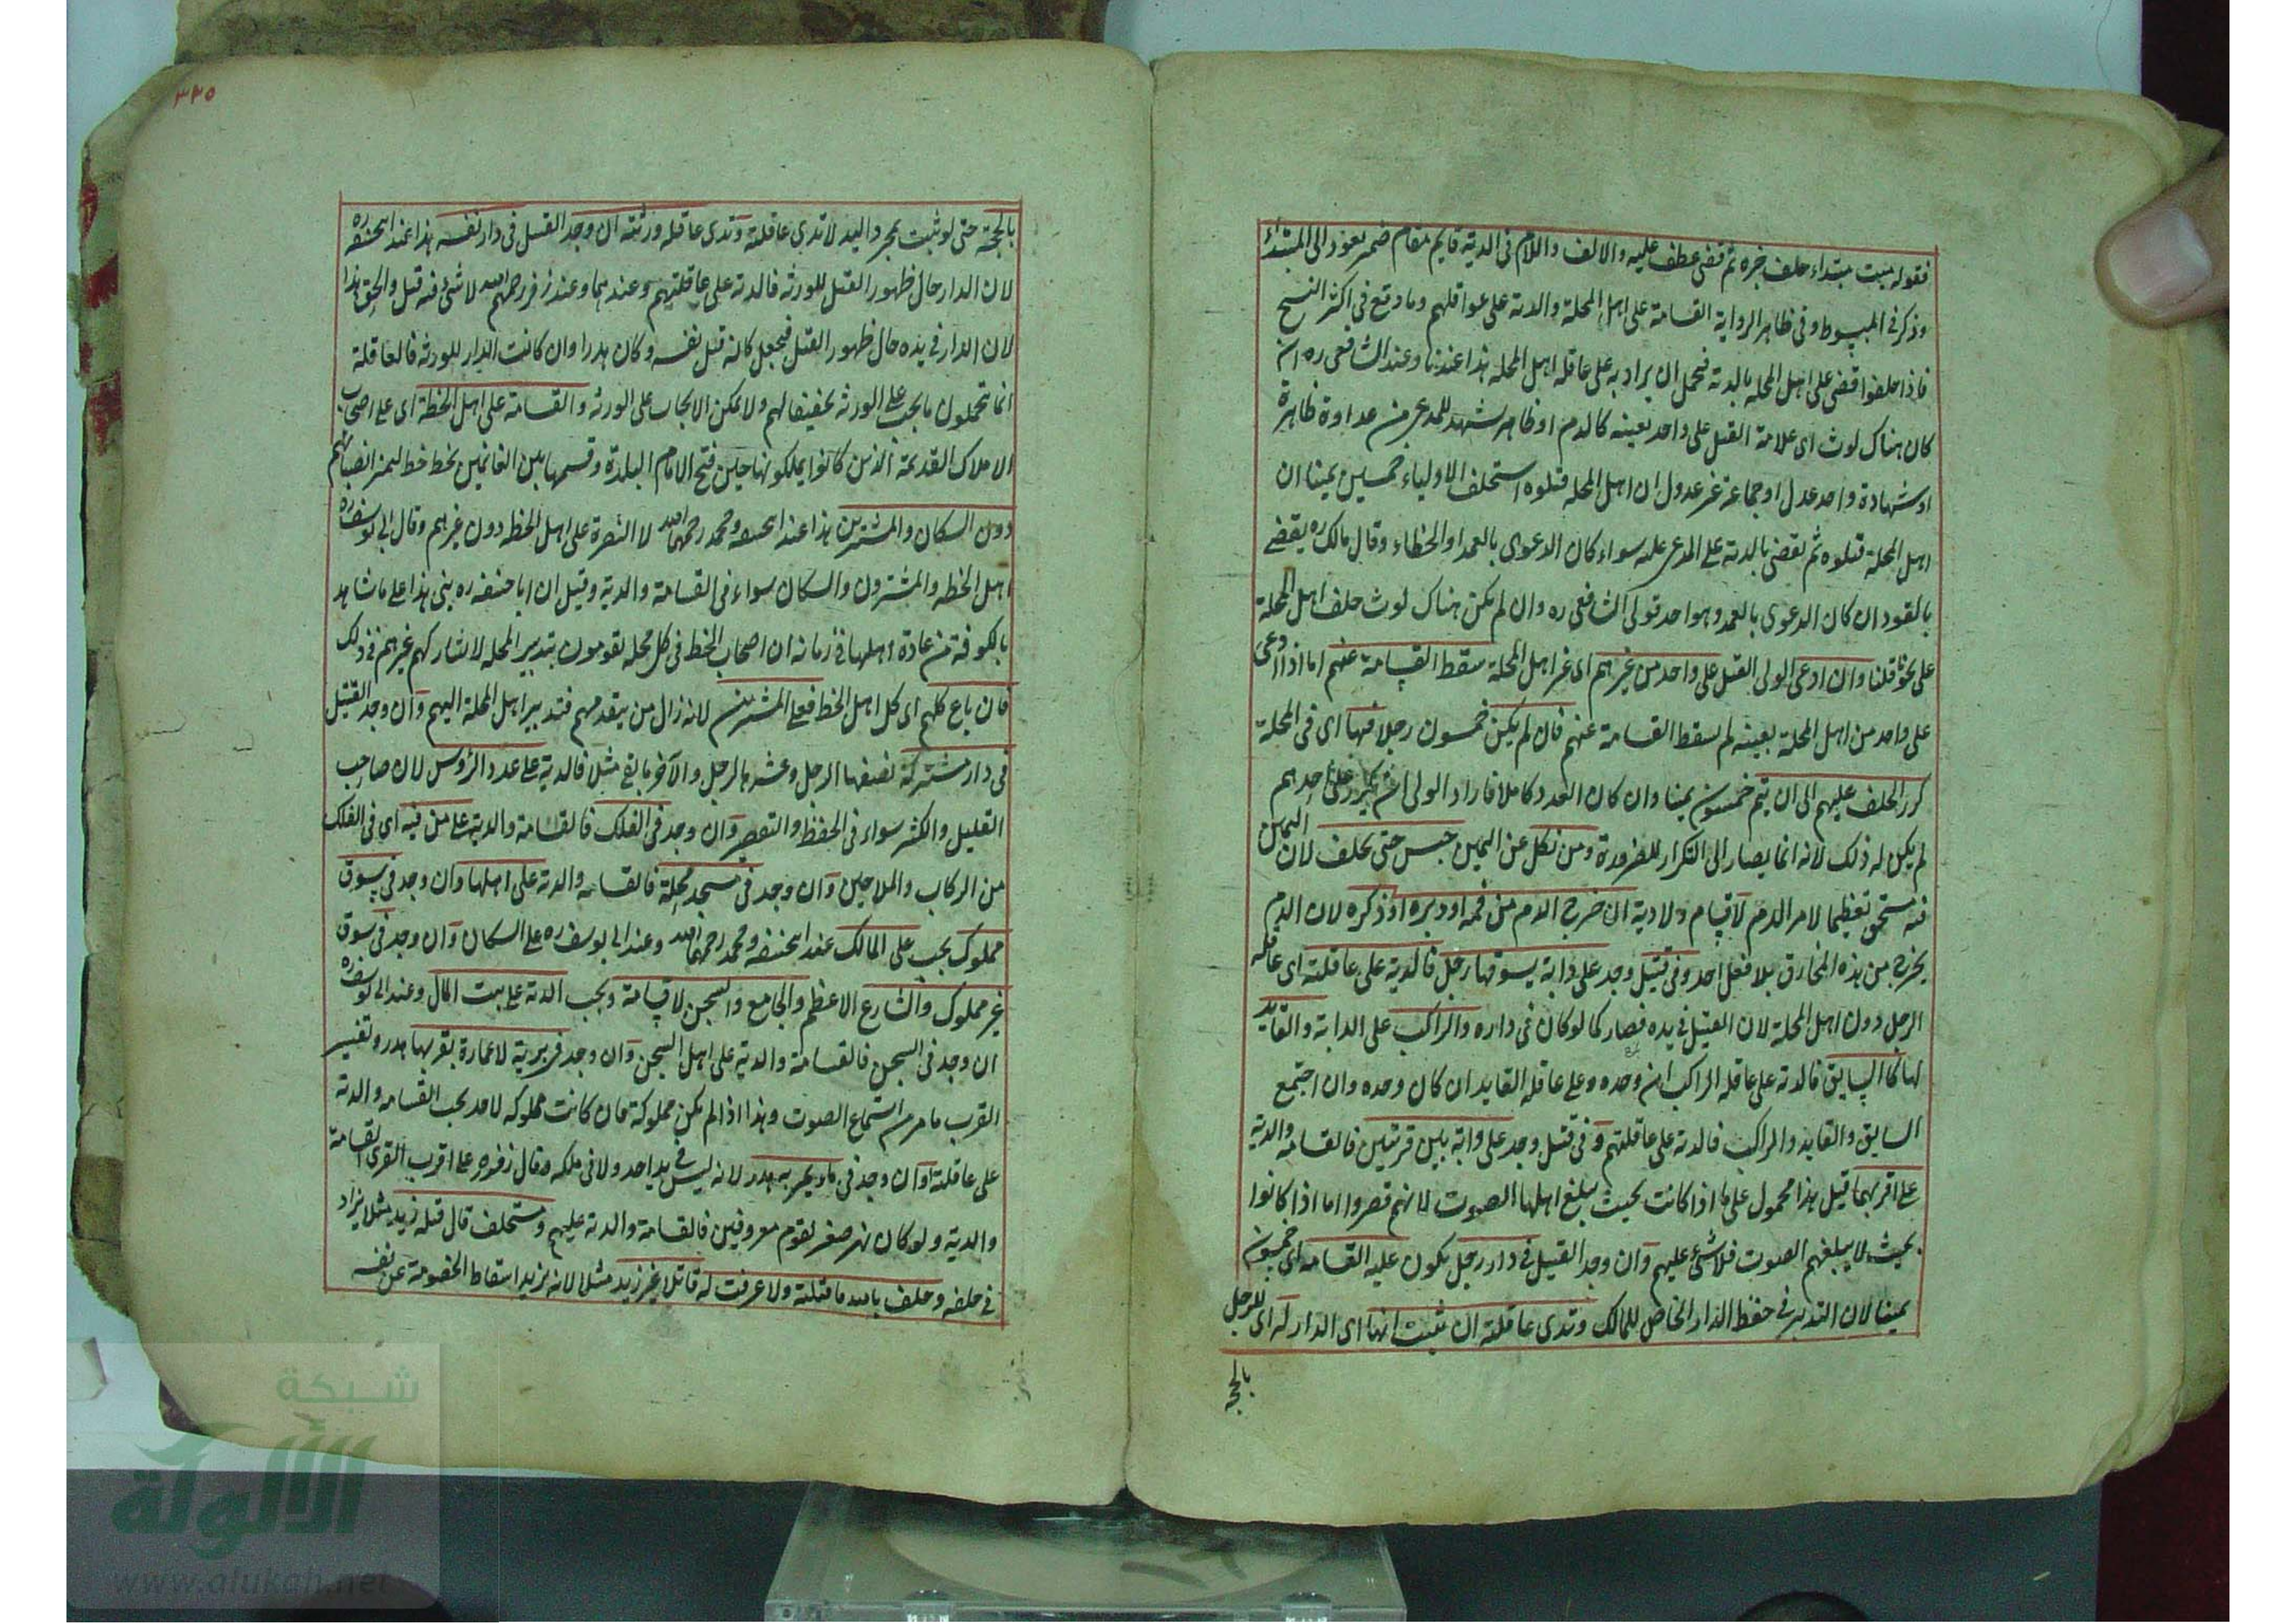 فقوله ميت مبتداء حلف خبره ثم قضى عطف عليه والالف واللام فى الدية قايم مقام ضمير يعود الى المبتداء
وذكر فى المبسوط وفى ظاهر الرواية القسامة على اهل المحلة والدية على عواقلهم وما وقع فى اكثر النسخ
فاذا حلفوا قضى على اهل المحلة بالدية فيحمل ان يراد به على عاقلة اهل المحلة هذا عندنا وعند الشافعى ره ان
كان هناك لوث اى علامة القتل على واحد بعينه كالدم او ظاهر يشهد للمدعى من عداوة ظاهرة
او شهادة واحد عدل او جماعة غير عدول ان اهل المحلة قتلوه استحلف الاولياء خمسين يمينا ان
اهل المحلة قتلوه ثم يقضى بالدية على المدعى عليه سواء كان الدعوى بالعمد او الخطاء وقال مالك ره يقضى
بالقود ان كان الدعوى بالعمد وهو احد قولى الشافعى ره وان لم يكن هناك لوث حلف اهل المحلة
على نحو قلنا وان ادعى الولى القتل على واحد من غيرهم اى غير اهل المحلة سقط القسامة عنهم اما اذا ادعى
على واحد من اهل المحلة بعينه لم يسقط القسامة عنهم فان لم يكن خمسون رجلا فيها اى فى المحلة
كرر الحلف عليهم الى ان يتم خمسون يمينا وان كان العدد كاملا فاراد الولى ان يكرر على احدهم
لم يكن له ذلك لانه انما يصار الى التكرار للضرورة ومن نكل عن اليمين حبس حتى يحلف لان اليمين
فيه مستحق تعظيما لامر الدم لا قسامة ولا دية ان خرج الدم من فمه او دبره او ذكره لان الدم
يخرج من هذه المخارق بلا فعل احد وفى قتيل وجد على دابة يسوقها رجل فالدية على عاقلته اى عاقلة
الرجل دون اهل المحلة لان القتيل فى يده فصار كما لو كان فى داره والراكب على الدابة والقايد
لها كالسايق فالدية على عاقلة الراكب ان وحده وعلى عاقلة القايد ان كان وحده وان اجتمع
السايق والقايد والراكب فالدية على عاقلتهم وفى قتيل وجد على دابة بين قريتين فالقسامة والدية
على اقربهما قيل هذا محمول على ما اذا كانت بحيث يبلغ اهلها الصوت لانهم قصروا اما اذا كانوا
بحيث لا يبلغهم الصوت فلا شئ عليهم وان وجد القتيل فى دار رجل يكون عليه القسامة اى خمسون
يمينا لان التدبير فى حفظ الدار الخاص للمالك وتدى عاقلته ان ثبت انها اى الدار له اى للرجل
بالحجة
٣٣٥
بالحجة حتى لو ثبت بمجرد اليد لا تدى عاقلته وتدى عاقلة ورثته ان وجد القتيل فى دار نفسه هذا عند ابى حنيفة ره
لان الدار حال ظهور القتل للورثة فالدية على عاقلتهم وعندهما وعند زفر رحمهم الله لا شئ فيه قيل والحق هذا
لان الدار فى يده حال ظهور القتل فيجعل كانه قتل نفسه وكان هدرا وان كانت الدار للورثة فالعاقلة
انما تحملون ما يجب على الورثة تخفيفا لهم ولا يمكن الايجاب على الورثة والقسامة على اهل الخطة اى على اصحاب
الاملاك القديمة الذين كانوا يملكونها حين فتح الامام البلدة وقسمها بين الغانمين بخط خط ليميز انصباءهم
دون السكان والمشترين هذا عند ابى حنيفة ومحمد رحمهما الله لان النصرة على اهل الخطة دون غيرهم وقال ابى يوسف ره
اهل الخطة والمشترون والسكان سواء فى القسامة والدية وقيل ان ابا حنيفة ره بنى هذا على ما شاهد
بالكوفة من عادة اهلها فى زمانه ان اصحاب الخطة فى كل محلة يقومون بتدبير المحلة لا يشاركهم غيرهم فى ذلك
فان باع كلهم اى كل اهل الخطة فعلى المشترين لانه زال من يتقدمهم فتدبير اهل المحلة اليهم وان وجد القتيل
فى دار مشتركة نصفها الرجل وعشرها لرجل والآخر ما بقى مثلا فالدية على عدد الرؤس لان صاحب
القليل والكثير سواء فى الحفظ والتقصير وان وجد فى الفلك فالقسامة والدية على من فيه اى فى الفلك
من الركاب والملاحين وان وجد فى مسجد محلة فالقسامة والدية على اهلها وان وجد فى سوق
مملوك يجب على المالك عند ابى حنيفة ومحمد رحمهما الله وعند ابى يوسف ره على السكان وان وجد فى سوق
غير مملوك والشارع الاعظم والجامع والسجن لا قسامة ويجب الدية على بيت المال وعند ابى يوسف ره
ان وجد فى السجن فالقسامة والدية على اهل السجن وان وجد فى برية لا عمارة بقربها هدر وتفسير
القرب ما مر من استماع الصوت وهذا اذا لم يكن مملوكة فان كانت مملوكة لاحد يجب القسامة والدية
على عاقلته وان وجد فى ماء يجر به هدر لانه ليس فى يد احد ولا فى ملكه وقال زفر ره على اقرب القرى القسامة
والدية ولو كان نهر صغير لقوم معروفين فالقسامة والدية عليهم ومستحلف قال قتله زيد مثلا يزاد
فى حلفه وحلف بالله ما قتلته ولا عرفت له قاتلا غير زيد مثلا لانه يريد اسقاط الخصومة عن نفسه
شبكة
الألوكة
www.alukah.net